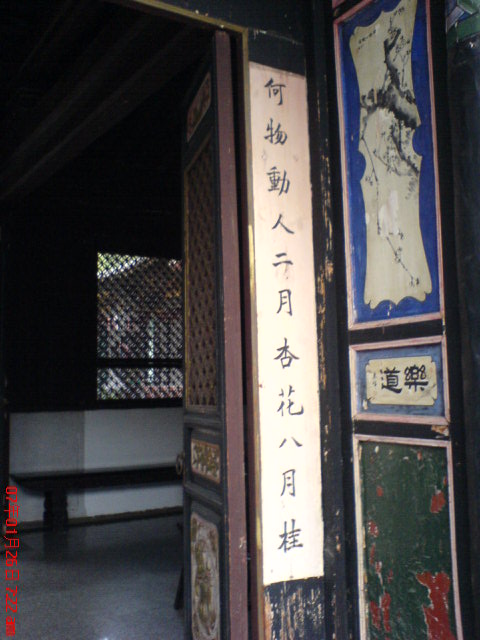 何物動人二月杏花八月桂
樂道
07,01月26日 7:22 pm